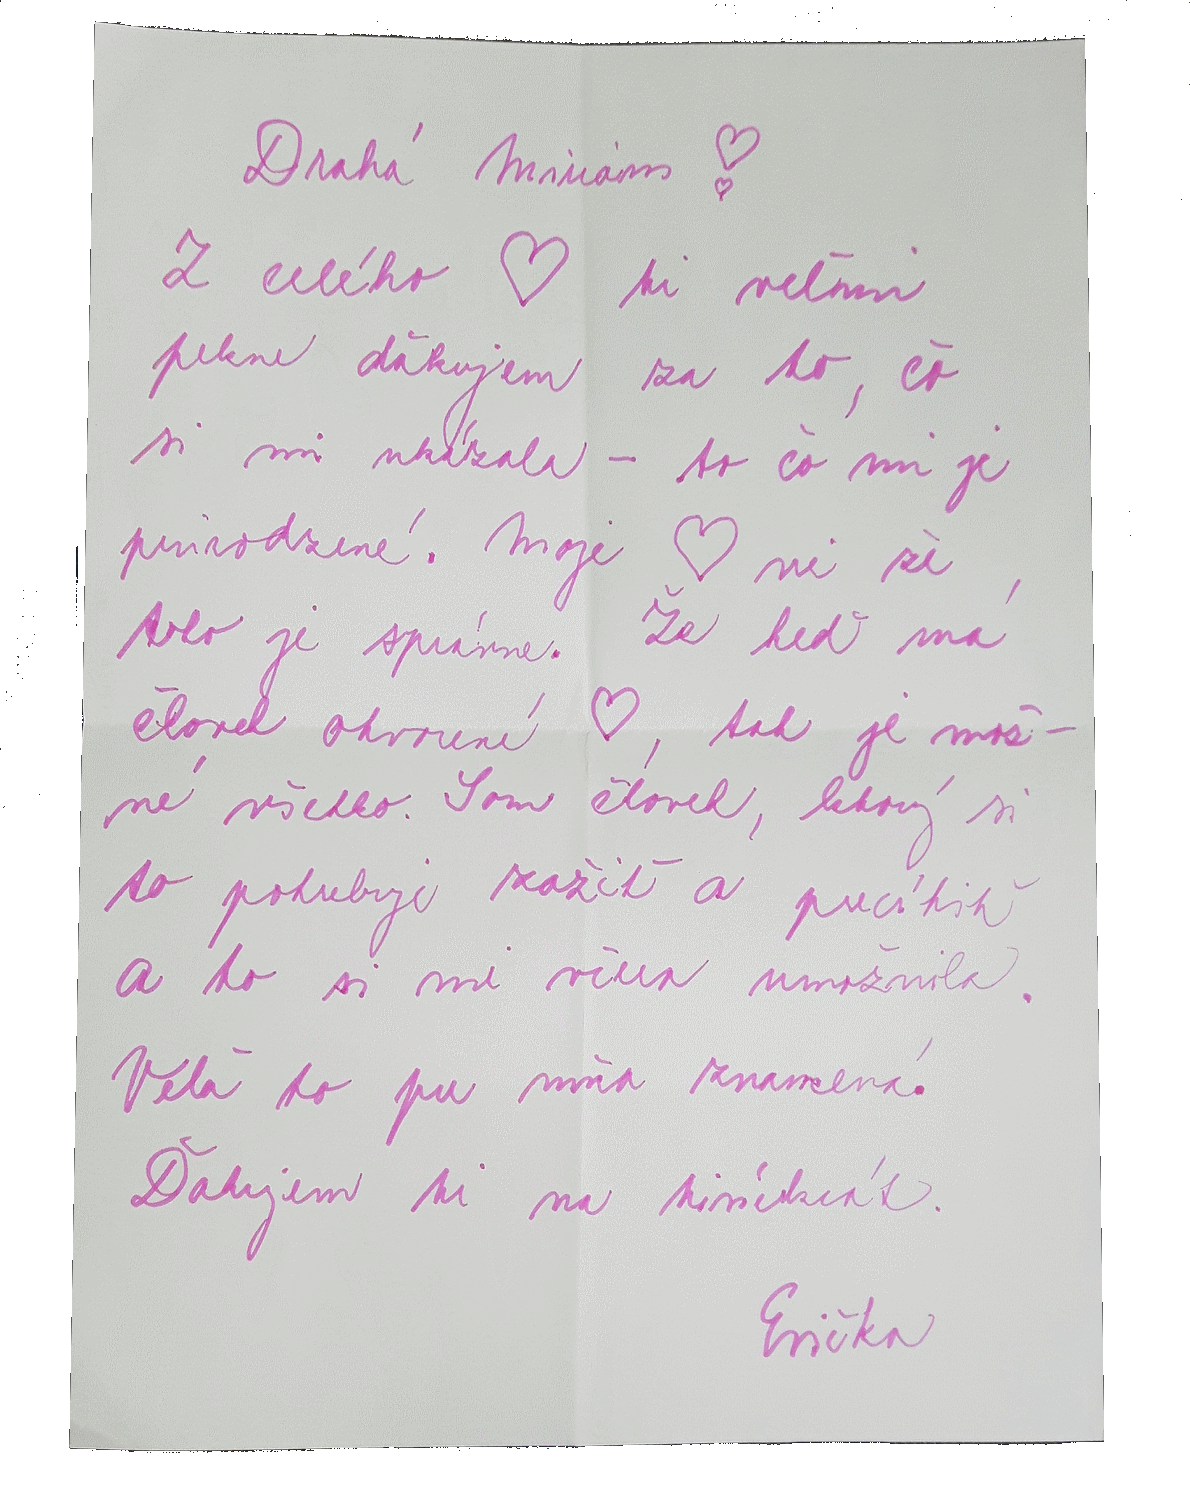 Drahá Miriam
Z celého ♡ ti veľmi
pekne ďakujem za to, čo
si mi ukázala – to čo mi je
prirodzené. Moje ♡ vie že,
toto je správne. Že keď má
človek otvorené ♡, tak je mož-
né všetko. Som človek, ktorý si
to potrebuje zažiť a precítiť
a to si mi včera umožnila.
Veľa to pre mňa znamená.
Ďakujem ti na tisíckrát.
Evička